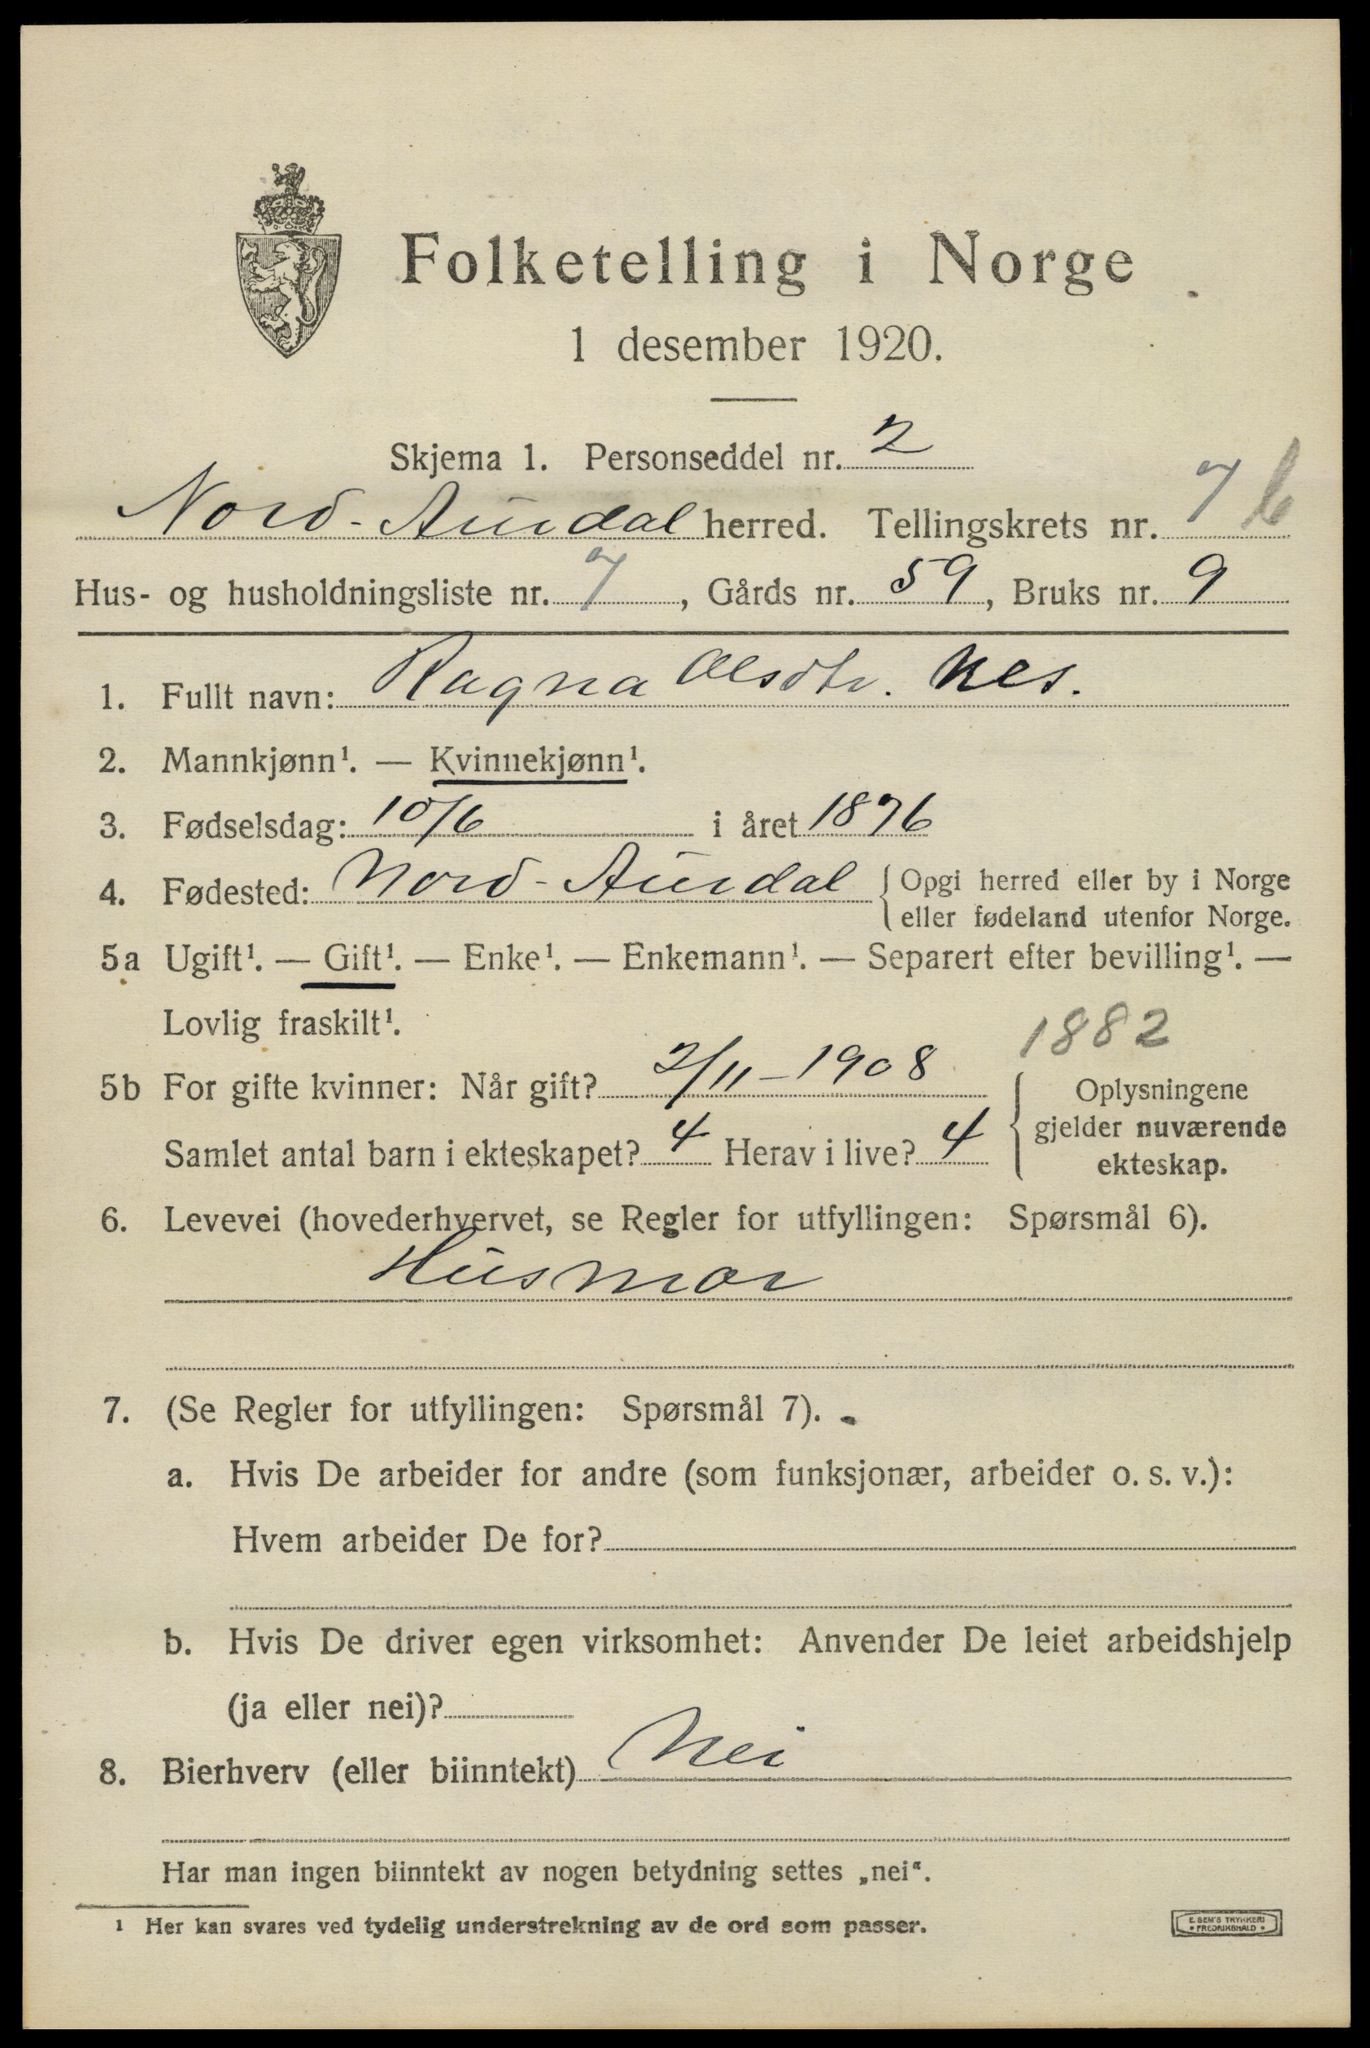 Folketelling i Norge
1 desember 1920.
Skjema 1. Personseddel nr. 2
Nord-Aurdal herred. Tellingskrets nr. 7 6
Hus- og husholdningsliste nr. 7, Gårds nr. 59, Bruks nr. 9
1. Fullt navn: Ragna Olsdtr. Nes.
2. Mannkjønn¹. — Kvinnekjønn¹.
3. Fødselsdag: 10/6 i året 1876
4. Fødested: Nord-Aurdal {Opgi herred eller by i Norge
eller fødeland utenfor Norge.
5a Ugift¹. — Gift¹. — Enke¹. — Enkemann¹. — Separert efter bevilling¹. —
Lovlig fraskilt¹.
1882
5b For gifte kvinner: Når gift? 2/11-1908 { Oplysningene
gjelder nuværende
Samlet antal barn i ekteskapet? 4 Herav i live? 4
ekteskap.
6. Levevei (hovederhvervet, se Regler for utfyllingen: Spørsmål 6).
Husmor
7. (Se Regler for utfyllingen: Spørsmål 7).
a. Hvis De arbeider for andre (som funksjonær, arbeider o. s. v.):
Hvem arbeider De for?
b. Hvis De driver egen virksomhet: Anvender De leiet arbeidshjelp
(ja eller nei)?
8. Bierhverv (eller biinntekt) Nei
Har man ingen biinntekt av nogen betydning settes „nei“.
¹ Her kan svares ved tydelig understrekning av de ord som passer.
E. SEM'S TRYKKERI
• FREDRIKSHALD •